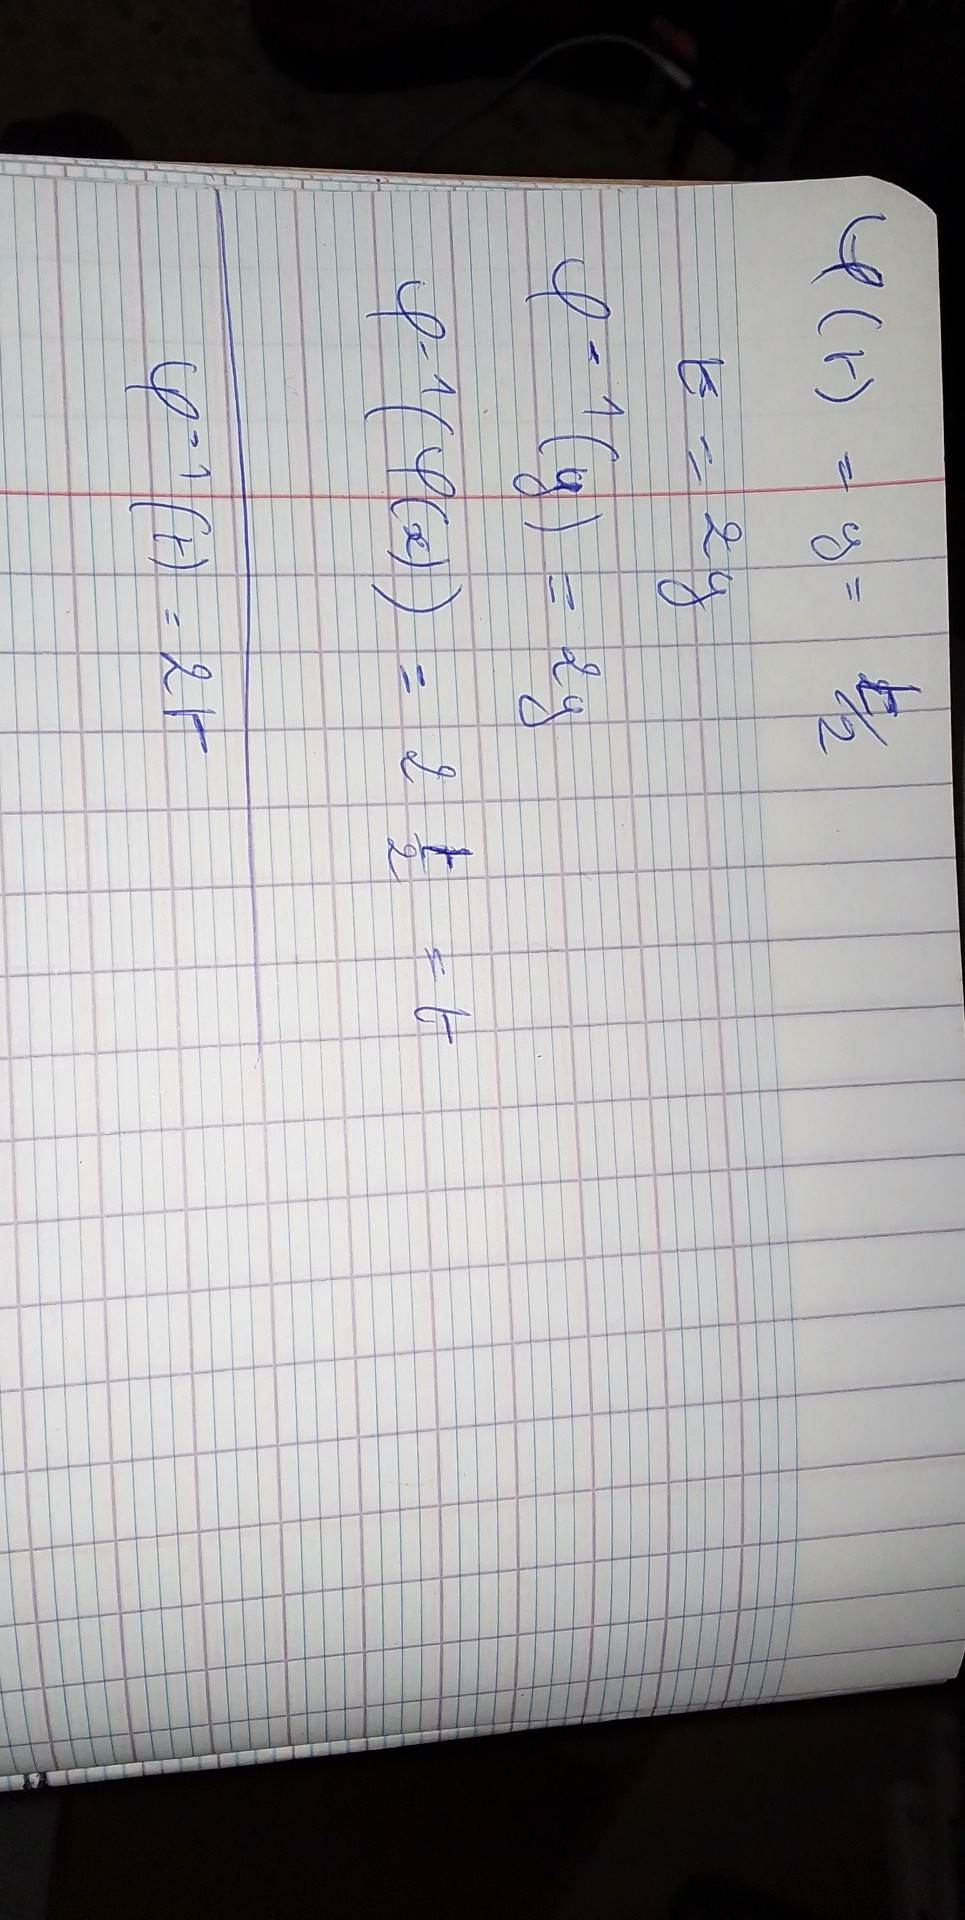 φ(t) = y = t/2
t = 2y
φ⁻¹(y) = 2y
φ⁻¹(φ(x)) = 2 t/2 = t
φ⁻¹(t) = 2t